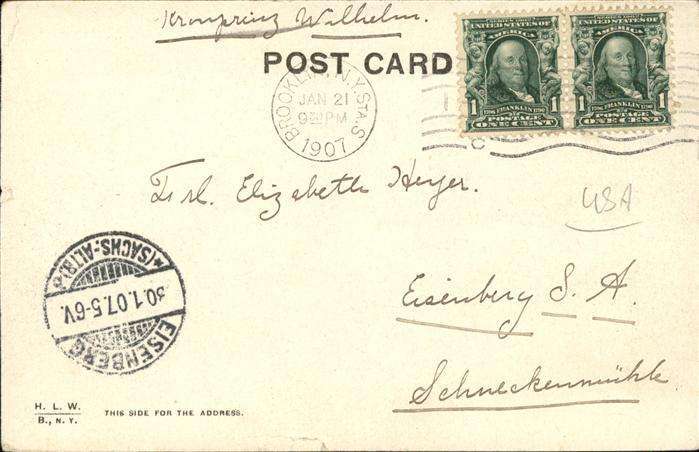 Kronprinz Wilhelm.
POST CARD
BROOKLYN, N.Y. STA. S.
JAN 21
9 PM
1907
SERIES 1902
UNITED STATES OF
AMERICA
1 1706 FRANKLIN 1790 1
POSTAGE
ONE CENT
SERIES 1902
UNITED STATES OF
AMERICA
1 1706 FRANKLIN 1790 1
POSTAGE
ONE CENT
C
Frl. Elizabeth Heyer.
USA
(SACHS.-ALTB.)
30.1.07.5-6V.
EISENBERG
Eisenberg S. A.
Schneckenmühle
H. L. W.
B., N. Y.
THIS SIDE FOR THE ADDRESS.